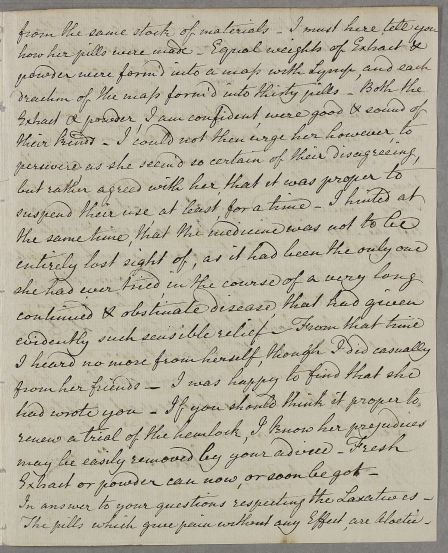 from the same stock of materials - I must here tell you
how her pills were made - Equal weights of Extract &
powder were form'd into a mass with Syrup, and each
drachm of the mass form'd into thirty pills - Both the
Extract & powder I am confident were good & sound of
their kinds - I could not then urge her however to
persivere as she seem'd so certain of their disagreeing,
but rather agreed with her, that it was proper to
suspend their use at least for a time - I hinted at
the same time, that the medicine was not to be
entirely lost sight of, as it had been the only one
she had ever tried in the course of a very long
continued & obstinate disease, that had given
evidently such sensible relief - From that time
I heard no more from herself, though I did casually
from her friends - I was happy to find that she
had wrote you - If you should think it proper to
renew a trial of the hemlock, I know her prejudices
may be easily removed by your advice - Fresh
Extract or powder can now or soon be got -
In answer to your questions respecting the Laxatives -
The pills which give pain without any Effect, are Aloetic -